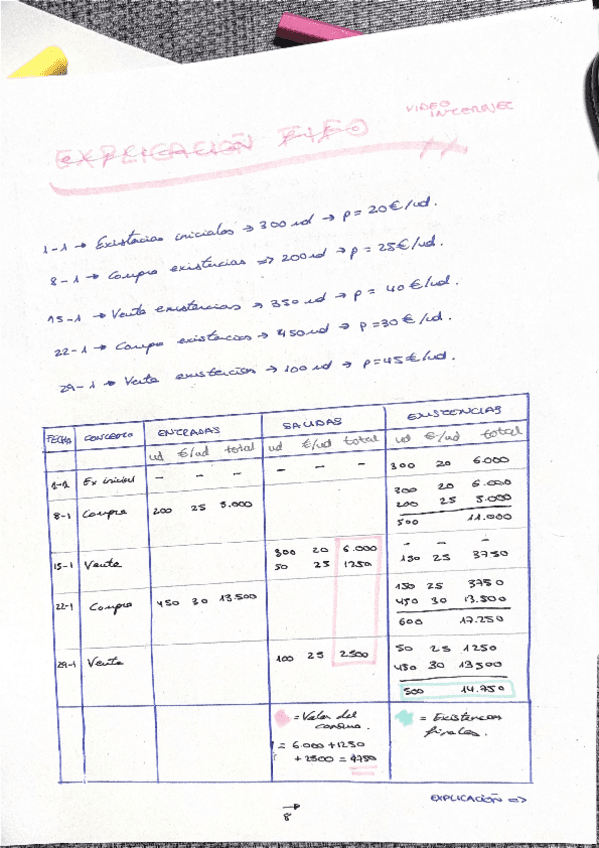 VIDEO
INTERNET
EXPLICACIÓN FIFO
1-1 → Existencias iniciales → 300 ud → p = 20€/ud.
8-1 → Compra existencias => 200 ud → p = 25€/ud.
15-1 → Venta existencias → 350 ud → p = 40€/ud.
22-1 → Compra existencias → 450 ud → p = 30€/ud.
29-1 → Venta existencias → 100 ud → p = 45€/ud.
FECHA CONCEPTO ENTRADAS SALIDAS EXISTENCIAS
ud €/ud total ud €/ud total ud €/ud total
1-1 Ex inicial - - - - - - 300 20 6.000
300 20 6.000
8-1 Compra 200 25 5.000 200 25 5.000
500 11.000
300 20 6.000 - - -
15-1 Venta 50 25 1250 150 25 3750
150 25 3750
22-1 Compra 450 30 13.500 450 30 13.500
600 17.250
50 25 1250
29-1 Venta 100 25 2500 450 30 13500
500 14.750
= Valor del
consumo.
= 6.000 + 1250
+ 2500 = 9750
= Existencias
finales.
EXPLICACIÓN =>
8